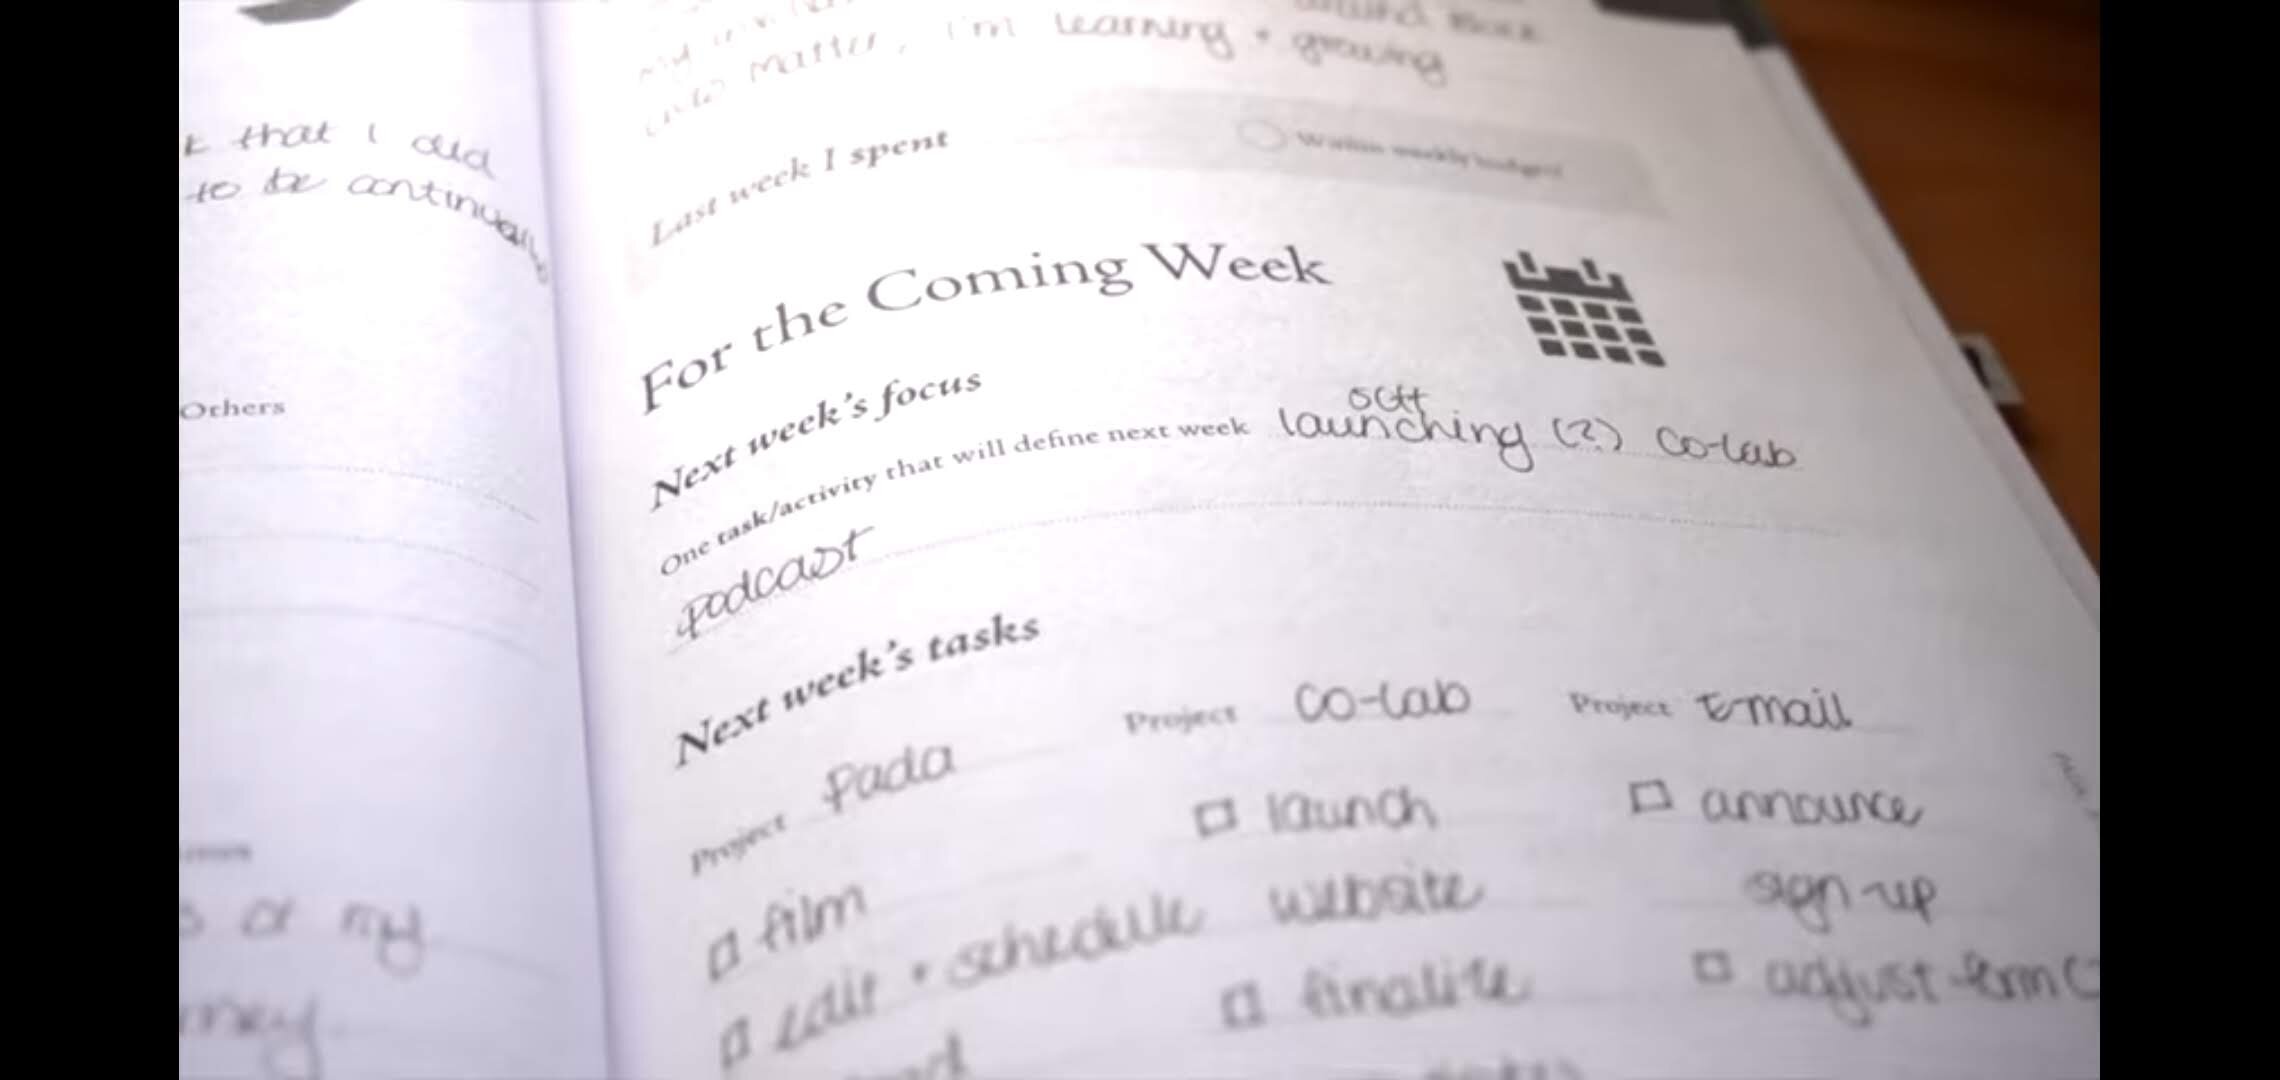 t that I did
to be continually
Others
of my
matter, I'm learning + growing
Last week I spent
Within weekly budget?
For the Coming Week
Next week's focus
One task/activity that will define next week launching (?) co-lab
soft
podcast
Next week's tasks
Project Pada
Project co-lab
Project E-mail
film
edit + schedule
launch
website
finalize
announce
sign-up
adjust